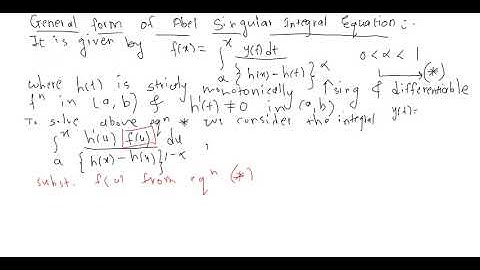 General form of Abel Singular Integral Equation :-
It is given by f(x) = ∫_a^x y(t) dt / {h(x) - h(t)}^α 0 < α < 1
→ (*)
where h(t) is strictly monotonically ↑sing & differentiable
fⁿ in [a, b) & h'(t) ≠ 0 in (a, b)
To solve above eqn * we consider the integral y(t)=
∫_a^x h'(u) f(u) du / {h(x) - h(u)}^{1-α} ,
subst. f(u) from eqⁿ (*)